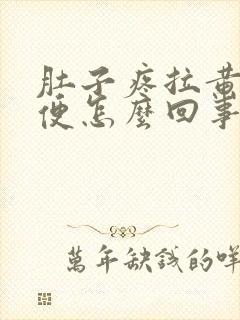 肚子疼拉黄
便怎麼回事
萬年缺錢的咩